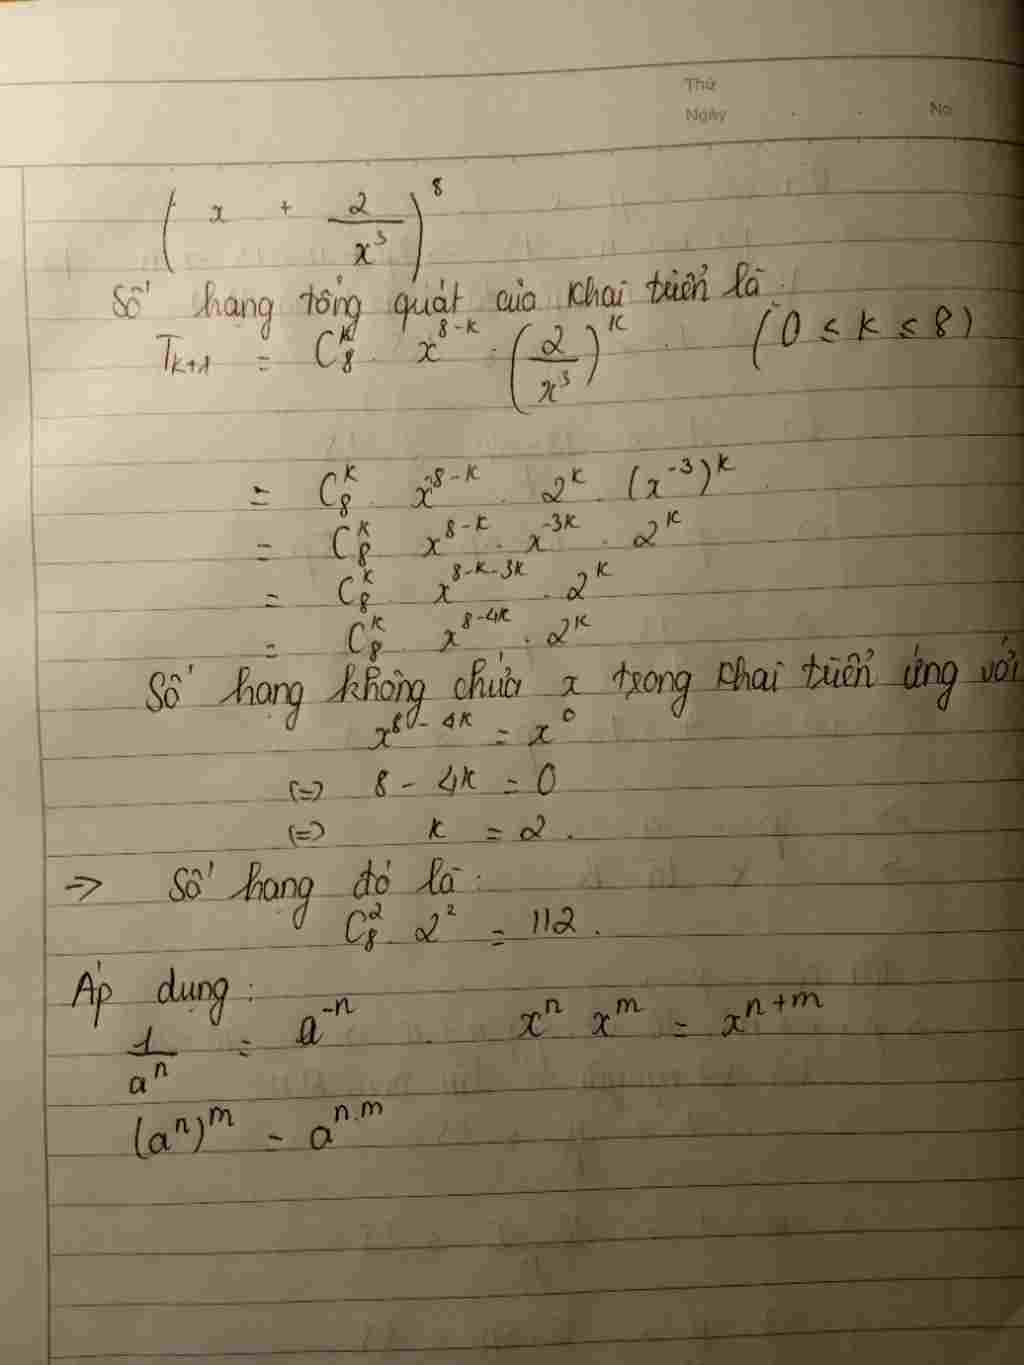 Thứ
Ngày . . No
( x + 2/x³ )⁸
Số hạng tổng quát của khai triển là :
Tₖ₊₁ = C₈ᵏ . x⁸⁻ᵏ . (2/x³)ᵏ . (0 ≤ k ≤ 8)
= C₈ᵏ . x⁸⁻ᵏ . 2ᵏ . (x⁻³)ᵏ
= C₈ᵏ x⁸⁻ᵏ . x⁻³ᵏ . 2ᵏ
= C₈ᵏ x⁸⁻ᵏ⁻³ᵏ . 2ᵏ
= C₈ᵏ . x⁸⁻⁴ᵏ . 2ᵏ
Số hạng không chứa x trong khai triển ứng với
x⁸⁻⁴ᵏ = x⁰
(=) 8 - 4k = 0
(=) k = 2 .
=> Số hạng đó là :
C₈² . 2² = 112 .
Áp dụng :
1/aⁿ = a⁻ⁿ . xⁿ xᵐ = xⁿ⁺ᵐ
(aⁿ)ᵐ = aⁿ·ᵐ